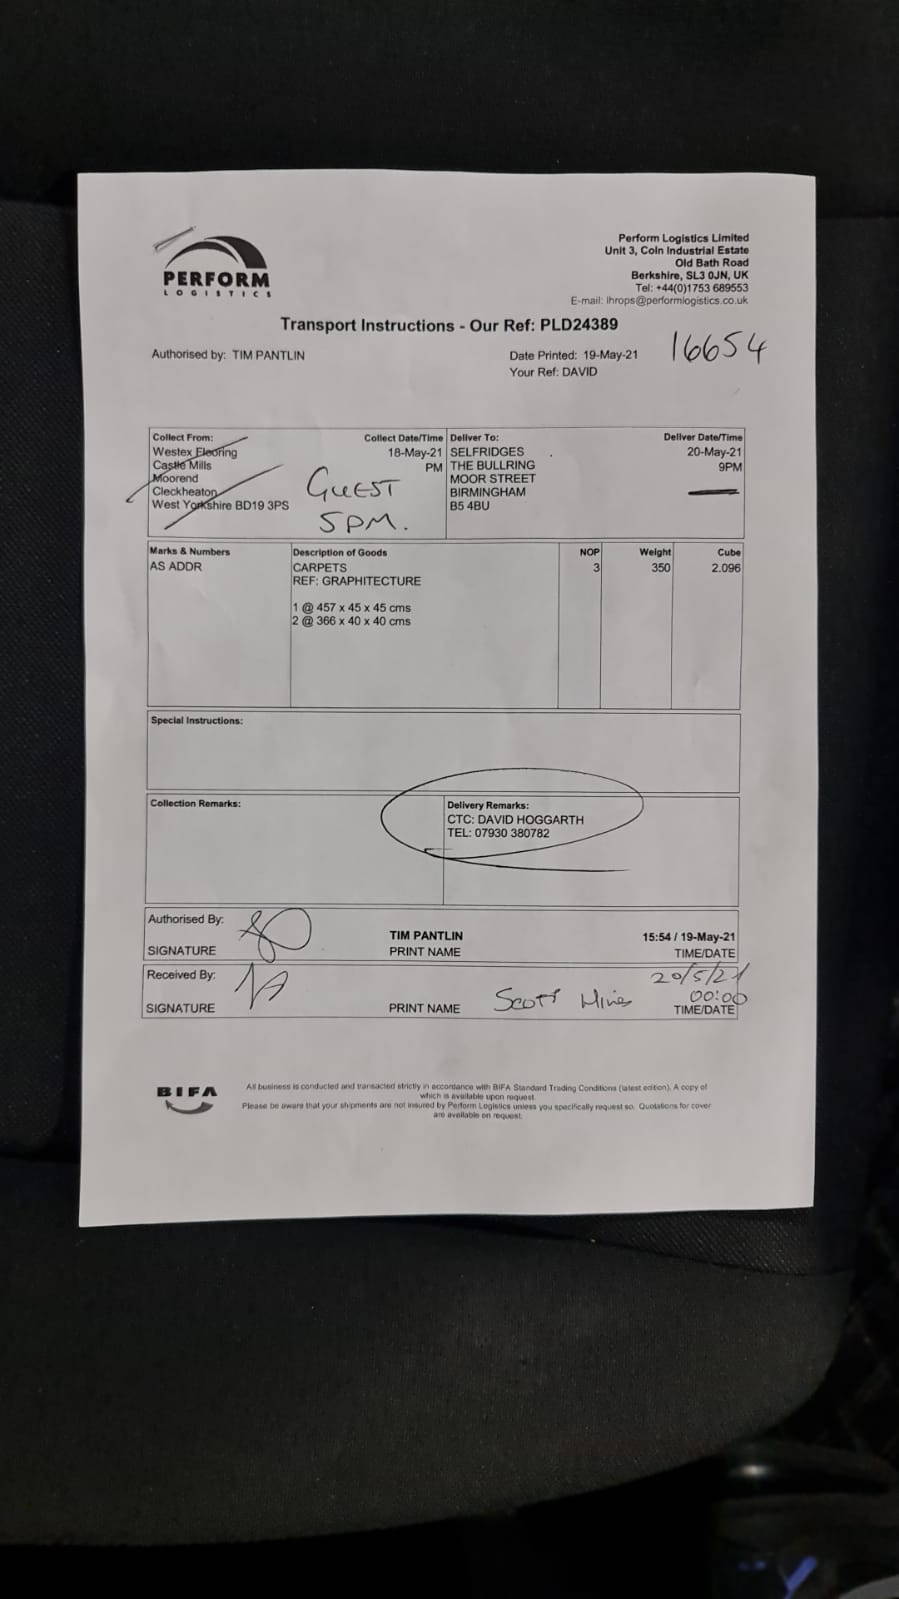 PERFORM
LOGISTICS
Perform Logistics Limited
Unit 3, Coln Industrial Estate
Old Bath Road
Berkshire, SL3 0JN, UK
Tel: +44(0)1753 689553
E-mail: lhrops@performlogistics.co.uk
Transport Instructions - Our Ref: PLD24389
16654
Authorised by: TIM PANTLIN
Date Printed: 19-May-21
Your Ref: DAVID
Collect From:
Westex Flooring
Castle Mills
Moorend
Cleckheaton
West Yorkshire BD19 3PS
Collect Date/Time
18-May-21
PM
GUEST
5PM.
Deliver To:
SELFRIDGES
THE BULLRING
MOOR STREET
BIRMINGHAM
B5 4BU
Deliver Date/Time
20-May-21
9PM
Marks & Numbers Description of Goods NOP Weight Cube
AS ADDR CARPETS 3 350 2.096
REF: GRAPHITECTURE
1 @ 457 x 45 x 45 cms
2 @ 366 x 40 x 40 cms
Special Instructions:
Collection Remarks:
Delivery Remarks:
CTC: DAVID HOGGARTH
TEL: 07930 380782
Authorised By:
TIM PANTLIN 15:54 / 19-May-21
SIGNATURE PRINT NAME TIME/DATE
Received By:
20/5/21
Scott Hines 00:00
SIGNATURE PRINT NAME TIME/DATE
BIFA
All business is conducted and transacted strictly in accordance with BIFA Standard Trading Conditions (latest edition). A copy of
which is available upon request.
Please be aware that your shipments are not insured by Perform Logistics unless you specifically request so. Quotations for cover
are available on request.